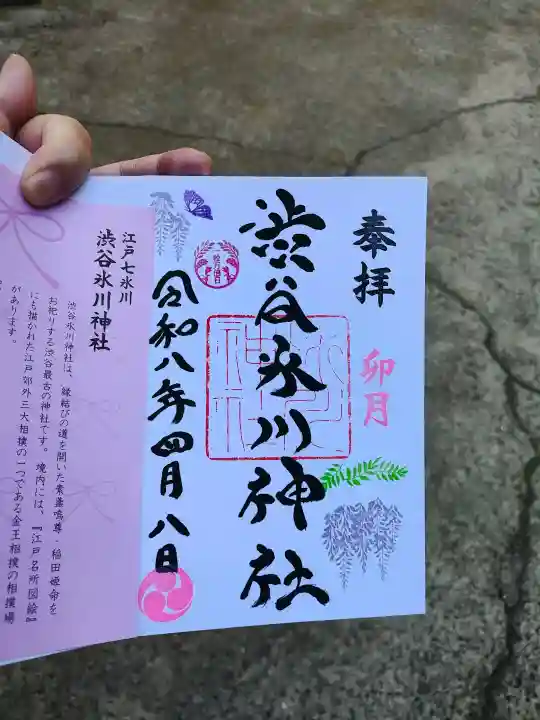 奉拝
卯月
渋谷氷川神社
令和八年四月八日
江戸七氷川
渋谷氷川神社
渋谷氷川神社は、縁結びの道を開いた素盞嗚尊・稲田姫命を
お祀りする渋谷最古の神社です。境内には、『江戸名所図絵』
にも描かれた江戸郊外三大相撲の一つである金王相撲の相撲場
があります。